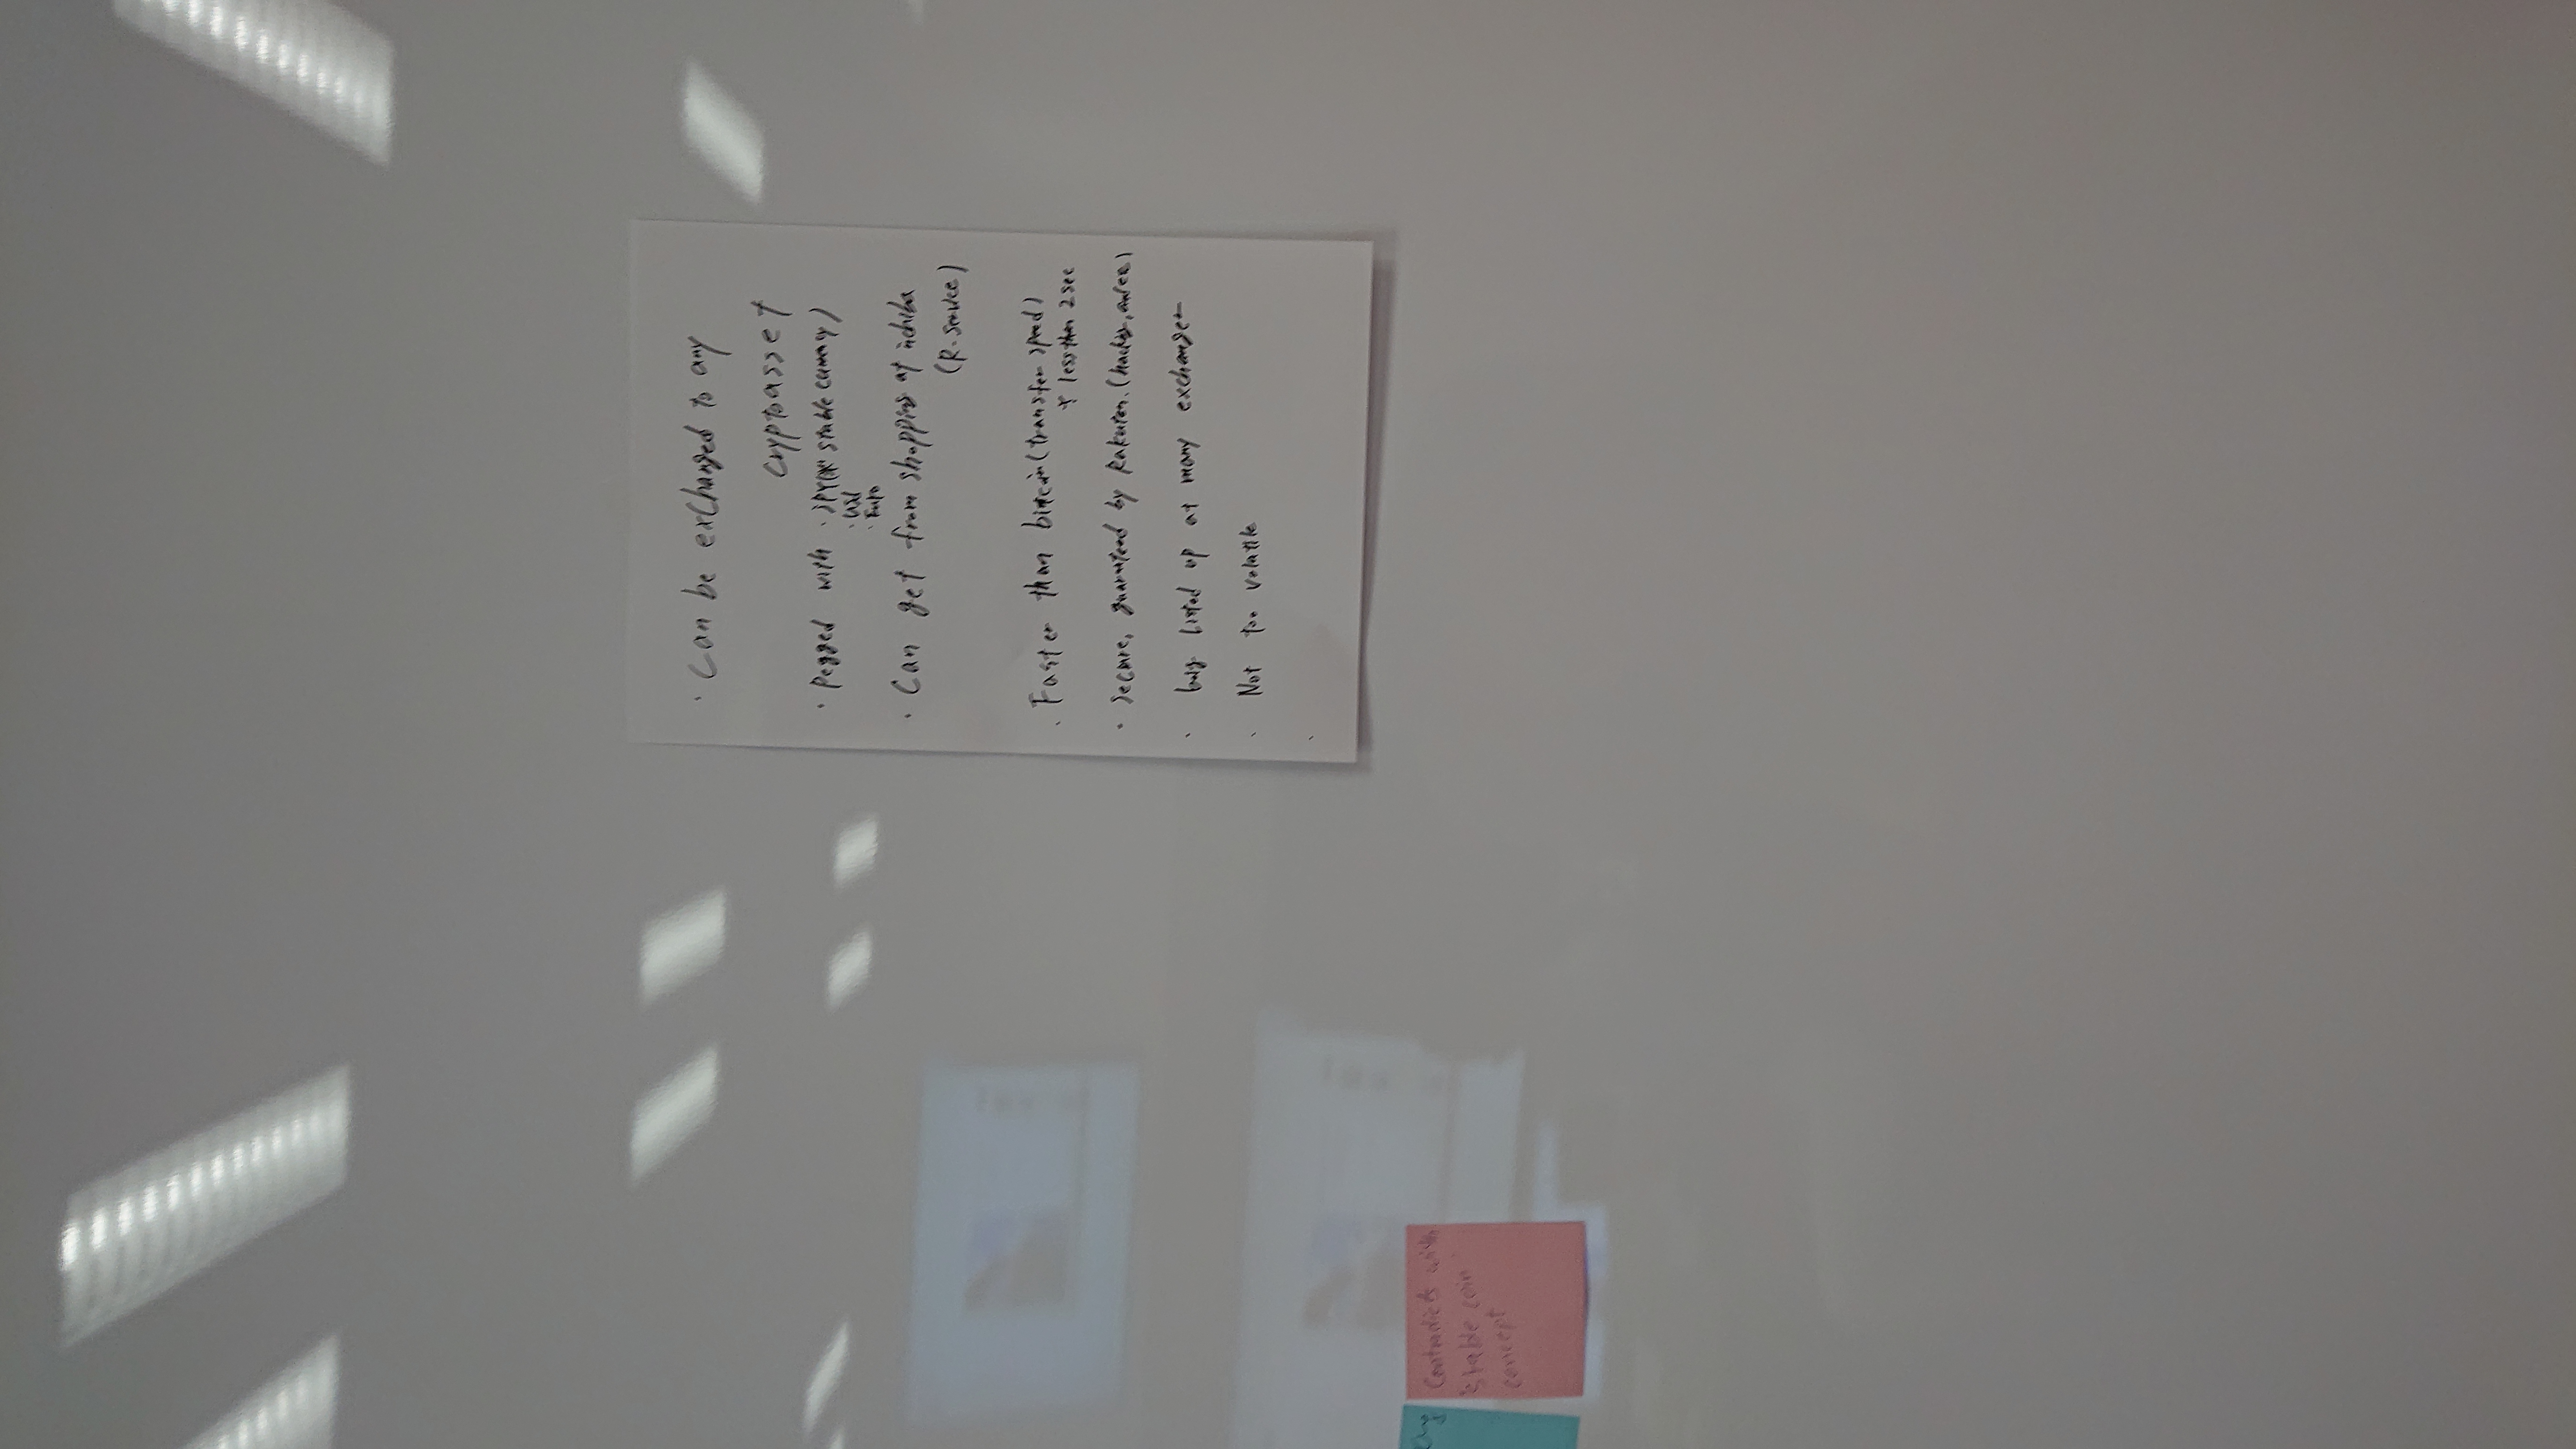 · Can be exchanged to any
cryptoasset
· Pegged with · JPY(or stable currency)
· USD
· Euro
· Can get from shopping at ichiba
(R-Service)
· Faster than bitcoin (transfer speed)
less than 2 sec
· Secure, guaranteed by Rakuten. (hacking,
· listed up at many exchanger
· Not too volatile
·
Contradicts with
'stable coin'
concept